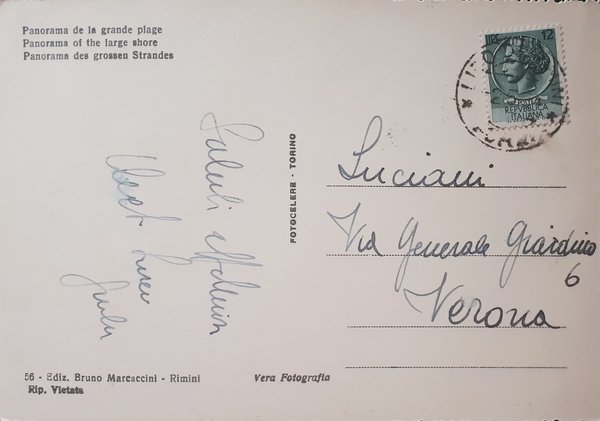 Panorama de la grande plage
Panorama of the large shore
Panorama des grossen Strandes
LIRE 12
POSTE
REPVBBLICA
ITALIANA
Saluti
FOTOCELERE - TORINO
Luciani
Via Generale Giardino
6
Verona
56 - Ediz. Bruno Marcaccini - Rimini
Rip. Vietata
Vera Fotografia